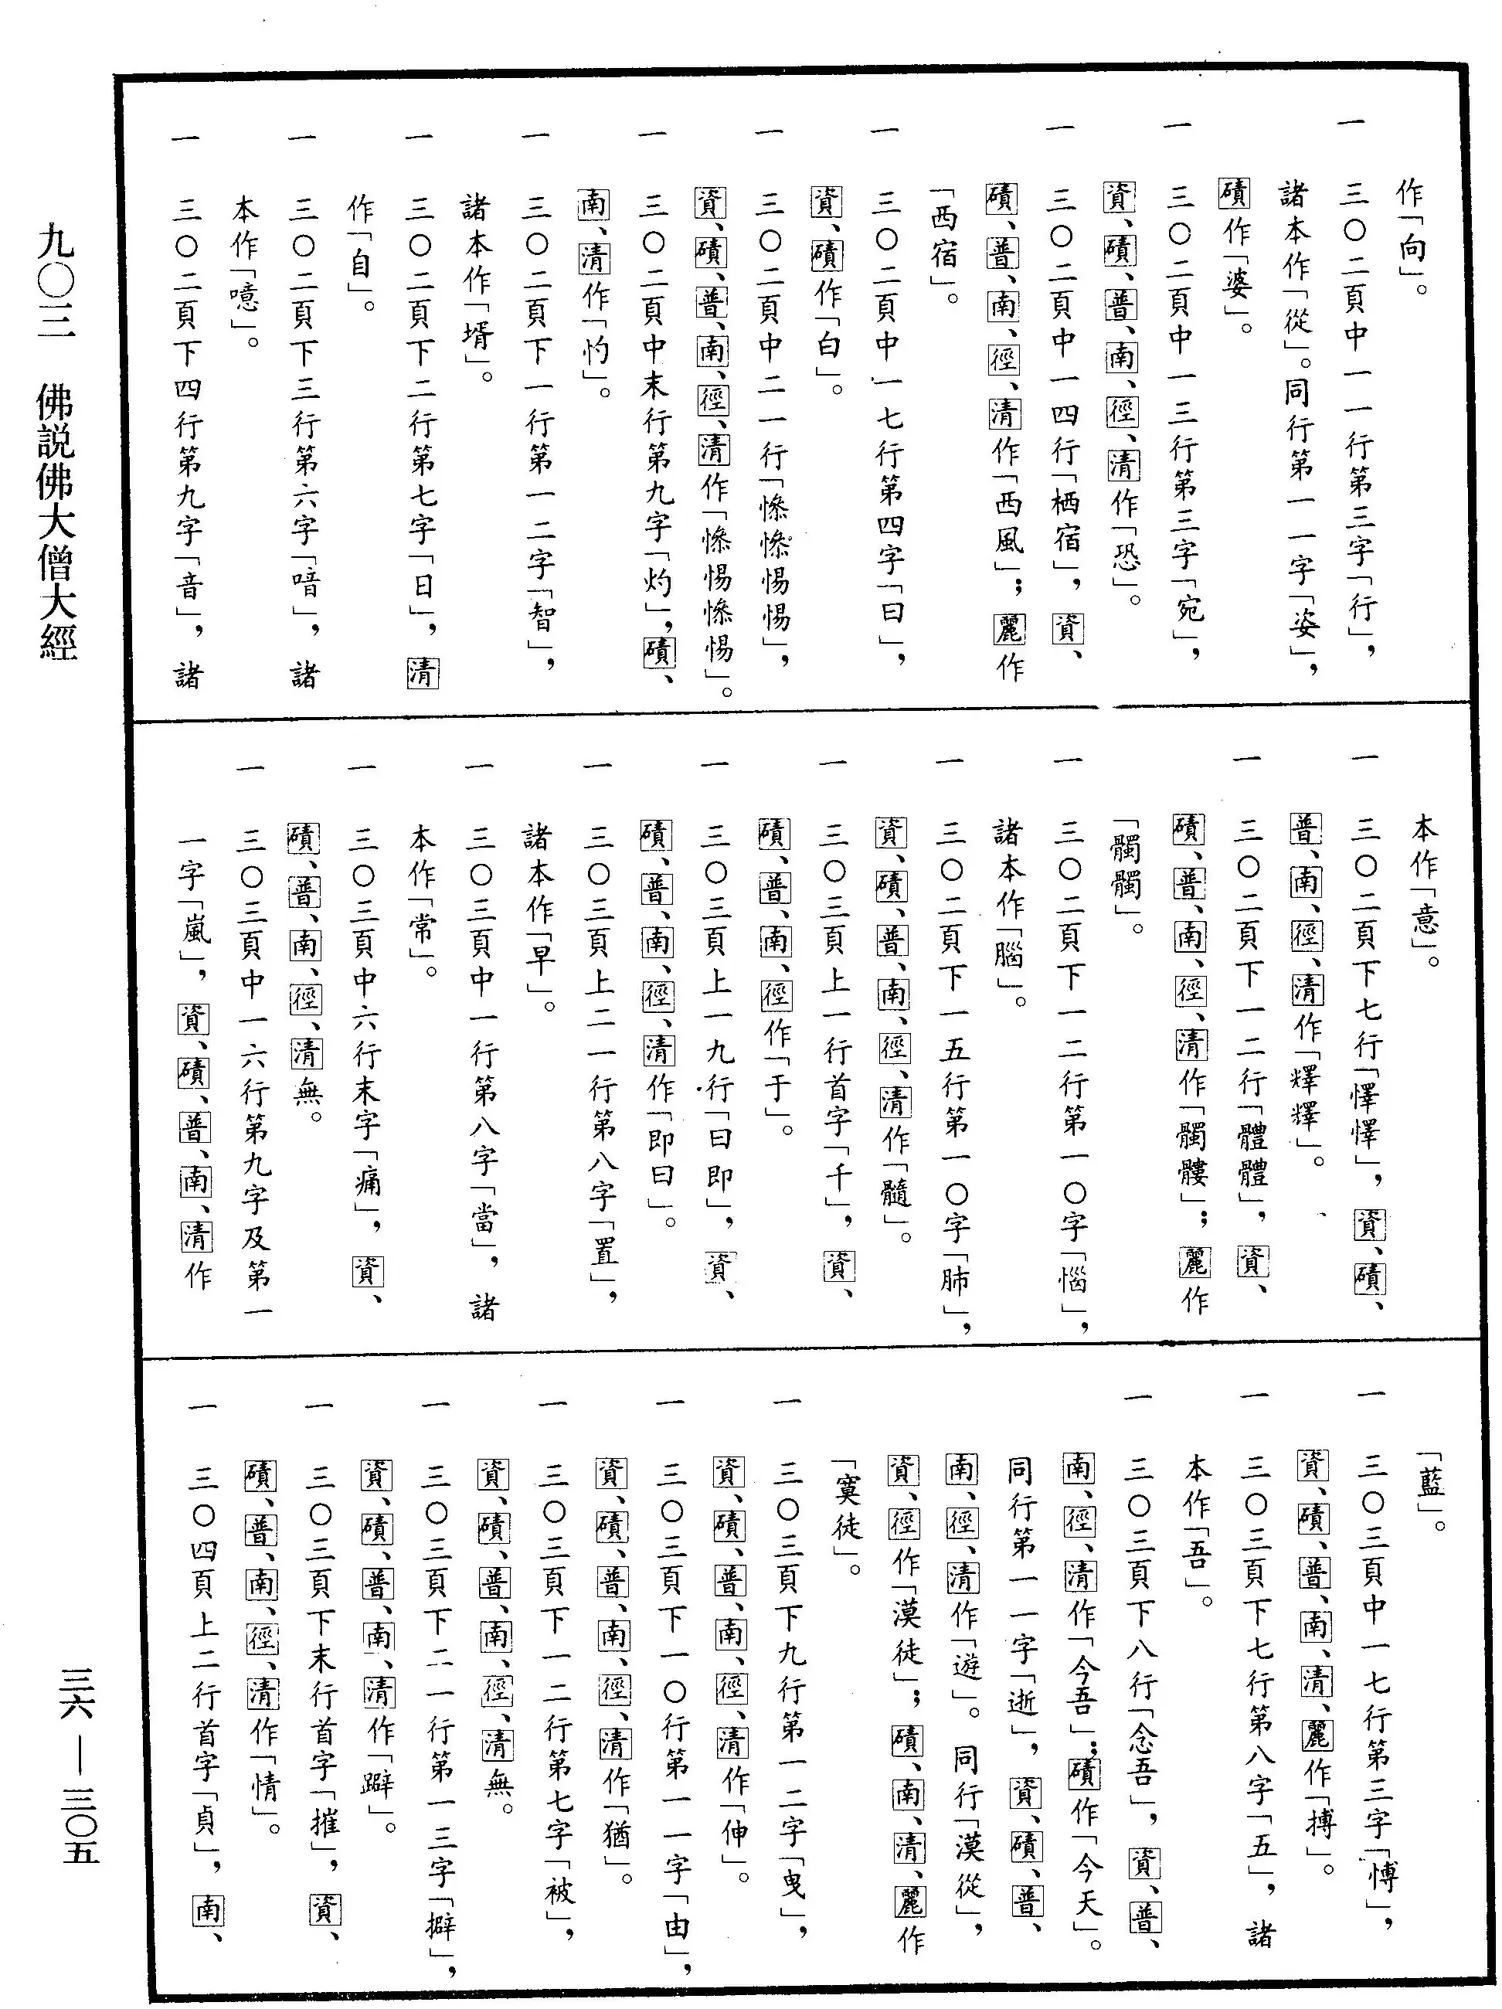 作「向」。
一 三〇二頁中一一行第三字「行」，
諸本作「從」。同行第一一字「姿」，
磧作「婆」。
一 三〇二頁中一三行第三字「宛」，
資、磧、普、南、徑、清作「恐」。
一 三〇二頁中一四行「栖宿」，資、
磧、普、南、徑、清作「西風」；麗作
「西宿」。
一 三〇二頁中一七行第四字「曰」，
資、磧作「白」。
一 三〇二頁中二一行「慘慘惕惕」，
資、磧、普、南、徑、清作「慘惕慘惕」。
一 三〇二頁中末行第九字「灼」，磧、
南、清作「忉」。
一 三〇二頁下一行第一二字「智」，
諸本作「壻」。
一 三〇二頁下二行第七字「日」，清
作「自」。
一 三〇二頁下三行第六字「喑」，諸
本作「噫」。
一 三〇二頁下四行第九字「音」，諸
本作「意」。
一 三〇二頁下七行「懌懌」，資、磧、
普、南、徑、清作「釋釋」。
一 三〇二頁下一二行「體體」，資、
磧、普、南、徑、清作「髑髏」；麗作
「髑髑」。
一 三〇二頁下一二行第一〇字「惱」，
諸本作「腦」。
一 三〇二頁下一五行第一〇字「肺」，
資、磧、普、南、徑、清作「髓」。
一 三〇三頁上一行首字「千」，資、
磧、普、南、徑作「于」。
一 三〇三頁上一九行「曰即」，資、
磧、普、南、徑、清作「即曰」。
一 三〇三頁上二一行第八字「置」，
諸本作「早」。
一 三〇三頁中一行第八字「當」，諸
本作「常」。
一 三〇三頁中六行末字「痛」，資、
磧、普、南、徑、清無。
一 三〇三頁中一六行第九字及第一
一字「嵐」，資、磧、普、南、清作
「藍」。
一 三〇三頁中一七行第三字「愽」，
資、磧、普、南、清、麗作「搏」。
一 三〇三頁下七行第八字「五」，諸
本作「吾」。
一 三〇三頁下八行「念吾」，資、普、
南、徑、清作「今吾」；磧作「今天」。
同行第一一字「逝」，資、磧、普、
南、徑、清作「遊」。同行「漠從」，
資、徑作「漠徒」；磧、南、清、麗作
「寞徒」。
一 三〇三頁下九行第一二字「曳」，
資、磧、普、南、徑、清作「伸」。
一 三〇三頁下一〇行第一一字「由」，
資、磧、普、南、徑、清作「猶」。
一 三〇三頁下一二行第七字「被」，
資、磧、普、南、徑、清無。
一 三〇三頁下二一行第一三字「擗」，
資、磧、普、南、清作「躃」。
一 三〇三頁下末行首字「摧」，資、
磧、普、南、徑、清作「情」。
一 三〇四頁上二行首字「貞」，南、
九〇三 佛説佛大僧大經
三六 — 三〇五